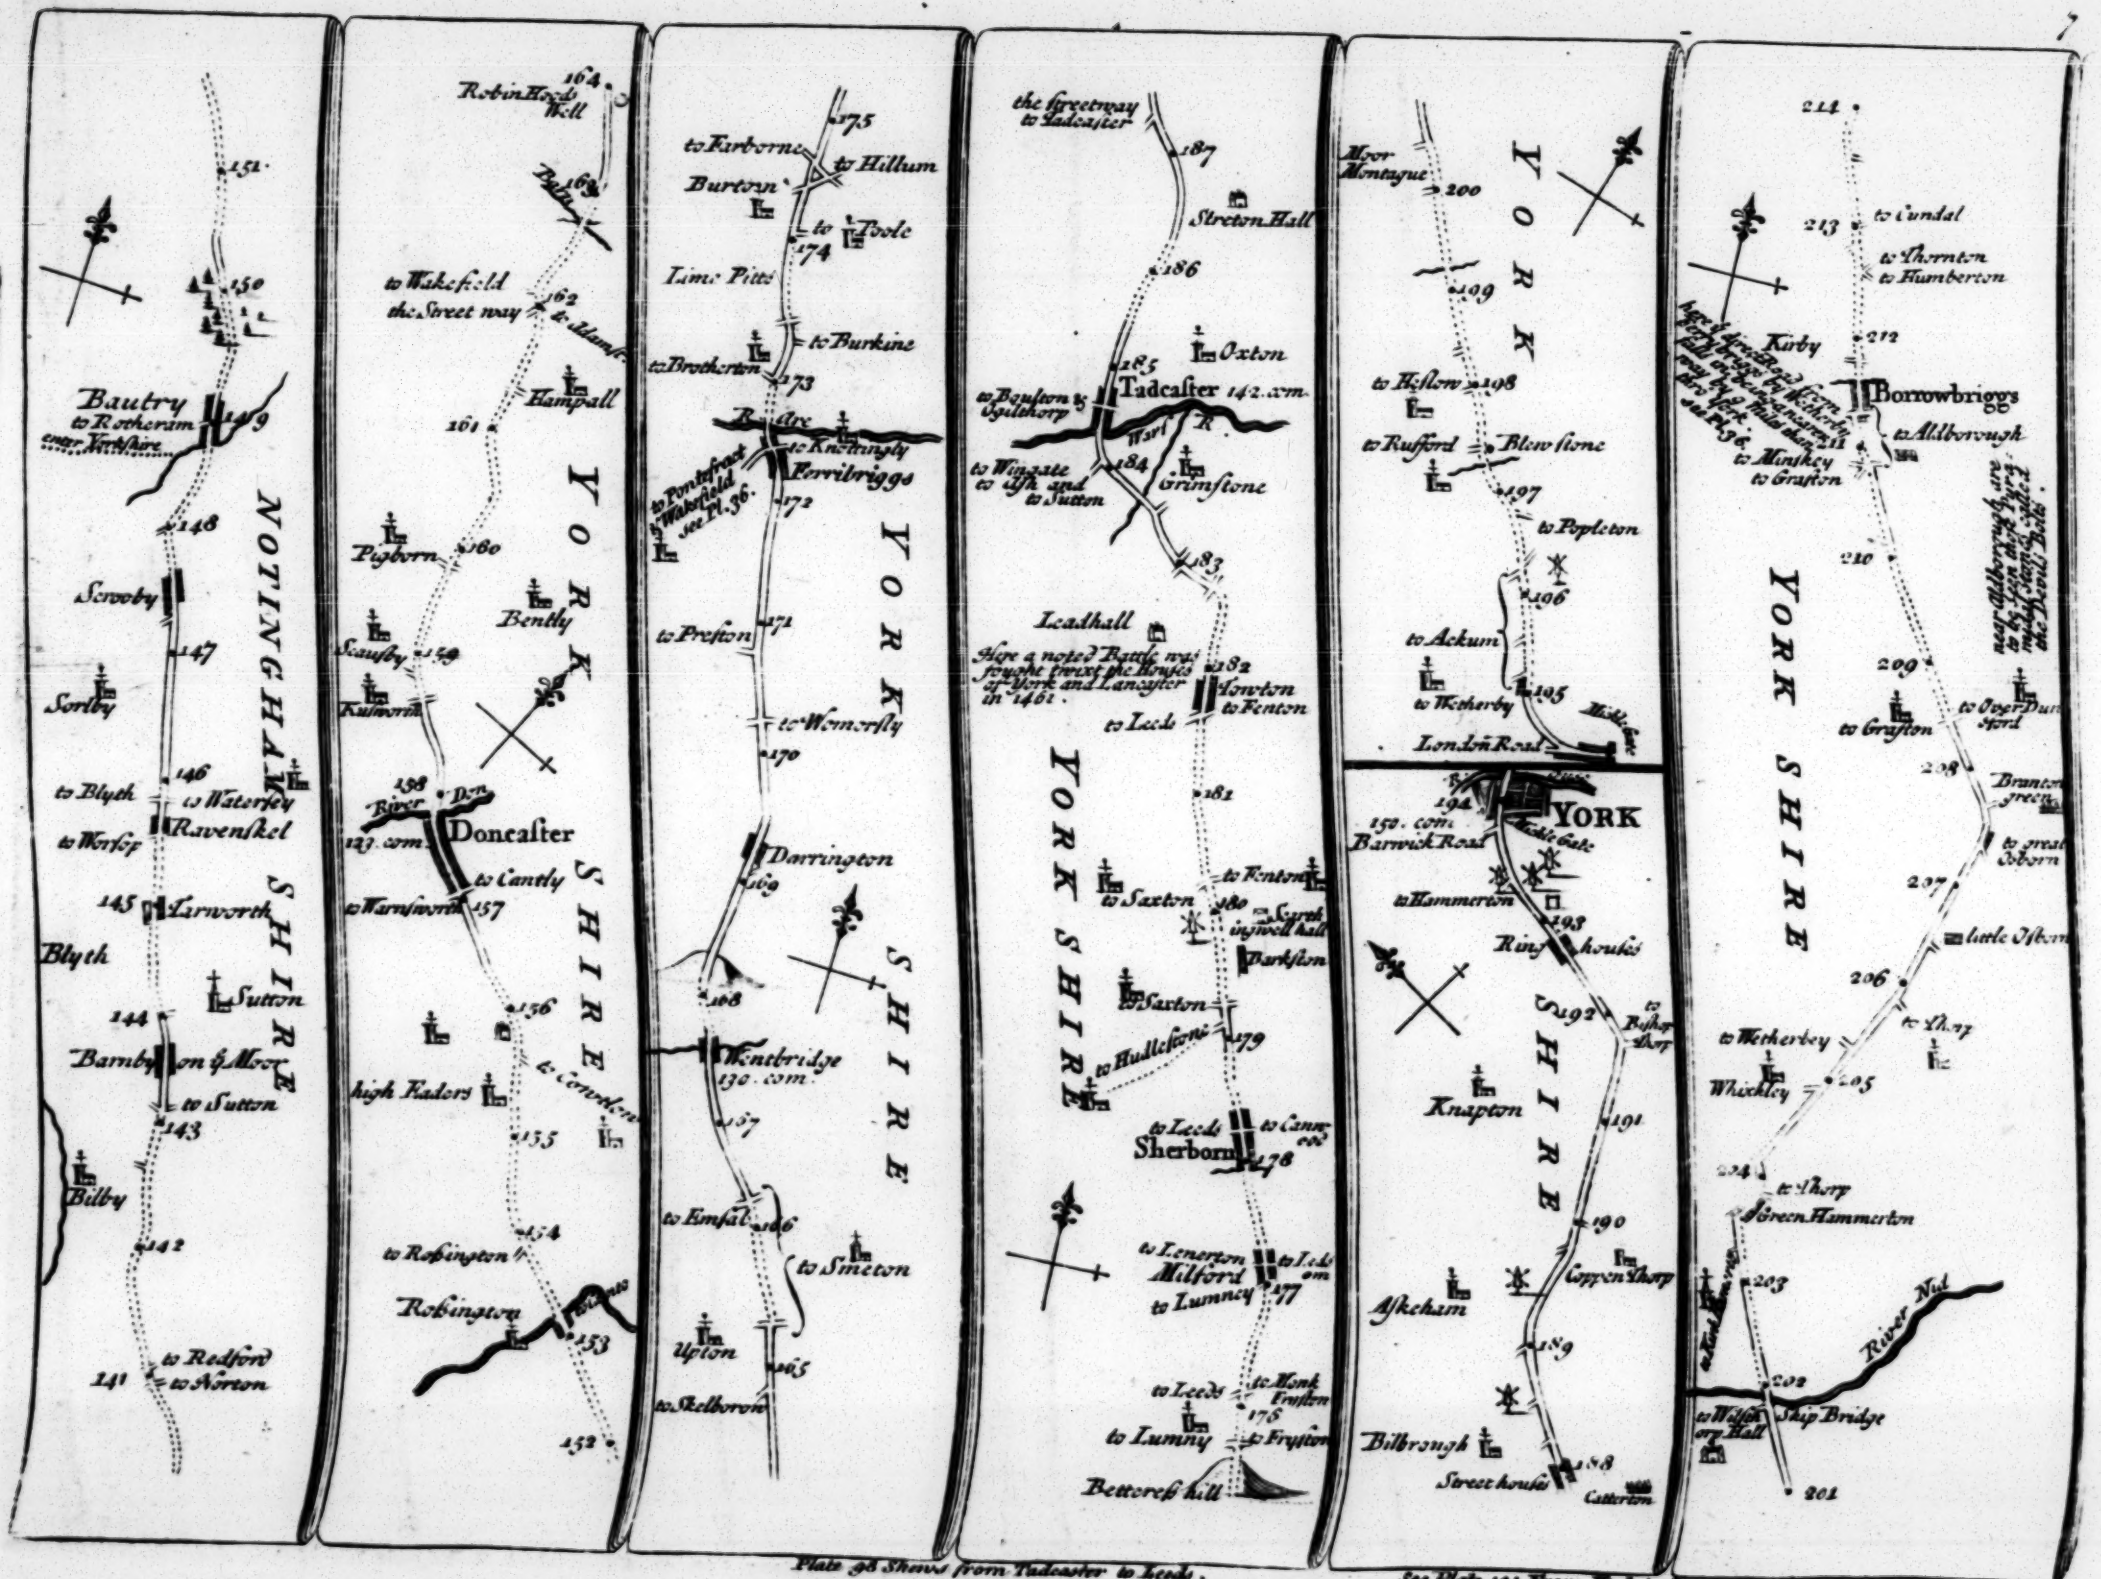 7
151.
150
Bautry
to Rotheram
enter Yorkshire
149
148
Scrooby
147
Sorlby
146
to Blyth
to Watersey
Ravenskel
to Worsop
145
Tarworth
Blyth
Sutton
144
Barnby on ẙ Moor
to Sutton
143
Bilby
142
to Redford
141
to Norton
NOTINGHAM SHIRE
164
Robin Hoods
Well
163
to Wakefield
the Street way
162
Hampall
161
Pigborn
160
Bently
Scausby
159
Kusworth
158
River Don
Doncaster
123. com.
to Cantly
to Warnsworth
157
156
high Eaders
155
154
to Roſsington
Roſsington
153
152
YORK SHIRE
175
to Farborne
to Hillum
Burton
to Poole
174
Lime Pitts
to Burkine
to Brotherton
173
R. Are
to Knottingly
Ferribriggs
to Pontefract
& Wakefield
see Pl. 36.
172
171
to Preston
to Womersly
170
Darrington
169
168
Wentbridge
130. com.
167
to Emsal
166
to Smeton
Upton
165
to Skelborow
YORK SHIRE
the streetway
to Tadcaster
187
Streton Hall
186
Oxton
185
Tadcaster 142. com.
to Boulton &
Ogilthorp
Warf R
184
to Wingate
to Ash and
to Sutton
Grimstone
183
Leadhall
Here a noted Battle was
fought twixt the Houses
of York and Lancaster
in 1461.
182
Towton
to Fenton
to Leeds
181
to Fenton
to Saxton
180
Scarth
ingwell hall
Barkston
to Saxton
179
to Hudleston
to Leeds
to Caww
ood
Sherborn
178
to Lenerton
to Leds
om
Milford
177
to Lumney
to Leeds
to Monk
Fryston
176
to Lumny
to Fryston
Betteress hill
YORK SHIRE
Moor
Montague
200
199
to Heslow
198
to Rufford
Blewstone
197
to Popleton
196
to Ackum
195
to Wetherby
London Road
Mickle Gate
194
150. com.
YORK
Mickle Gate
Barwick Road
to Hammerton
193
Ring houses
192
to
Bishop
Dorp
Knapton
191
190
Coppen Thorp
Askeham
189
Bilbrough
188
Street houses
Catterton
YORK SHIRE
214
213
to Cundal
to Thornton
to Humberton
Kirby
212
see Pl. 36.
Borrowbriggs
211
to Aldborough
to Minskey
to Grafton
near Aldborough are
the Devils Bolts.
210
209
to Over Dun
sford
to Grafton
208
Branton
green
to great
Osborn
207
little Osborn
206
to Thorp
to Wetherbey
205
Whixkley
204
to Thorp
Green Hammerton
203
River Nid
202
Skip Bridge
201
YORK SHIRE
Plate 98 Shews from Tadcaster to Leeds.